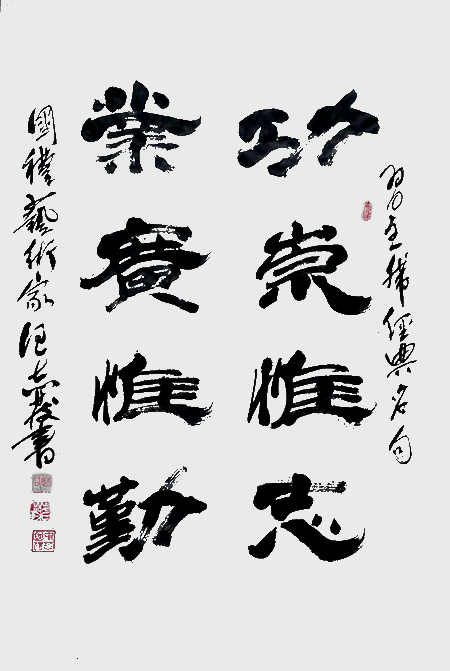 習主席經典名句
功崇惟志
業廣惟勤
國禮藝術家 書